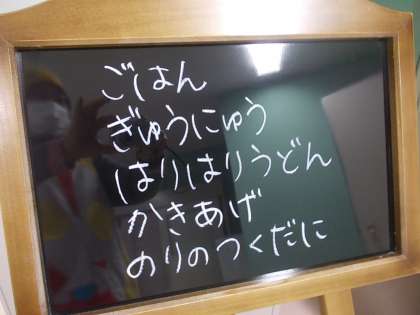 ごはん
ぎゅうにゅう
はりはりうどん
かきあげ
のりのつくだに